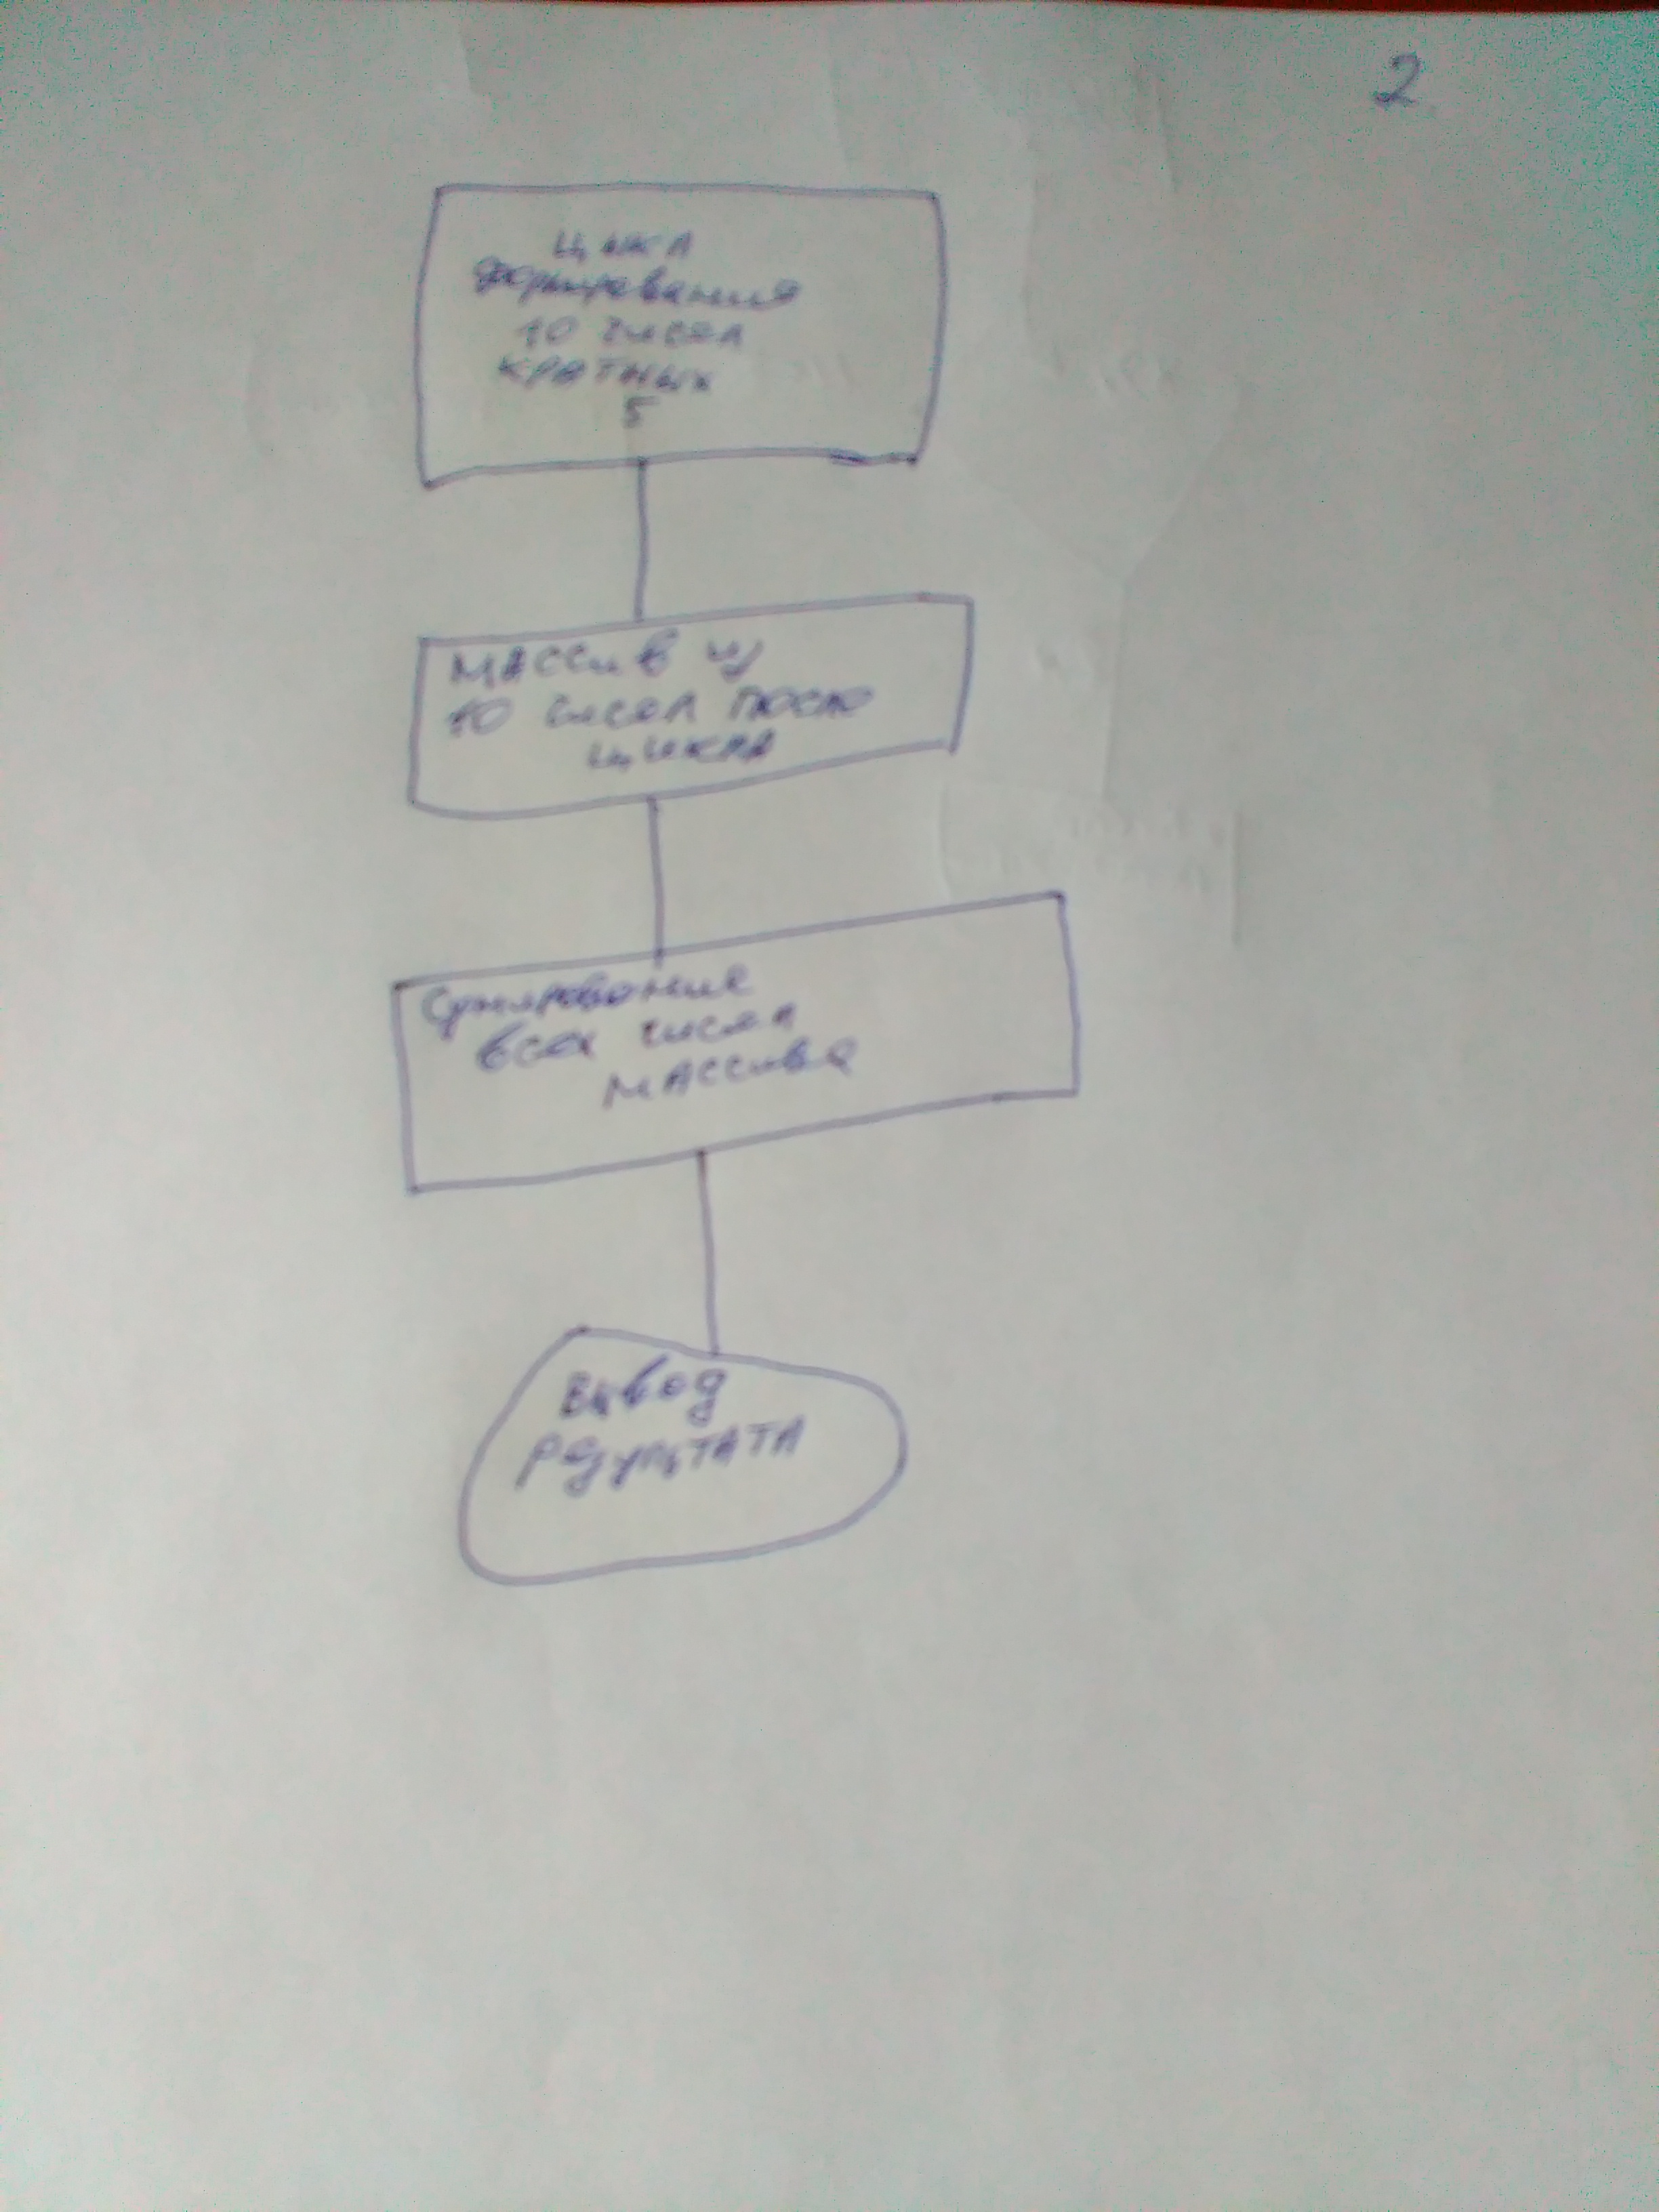 2
Цикл
формирования
10 чисел
кратных
5
Массив из
10 чисел после
цикла
Сумирование
всех чисел
массива
Вывод
результата